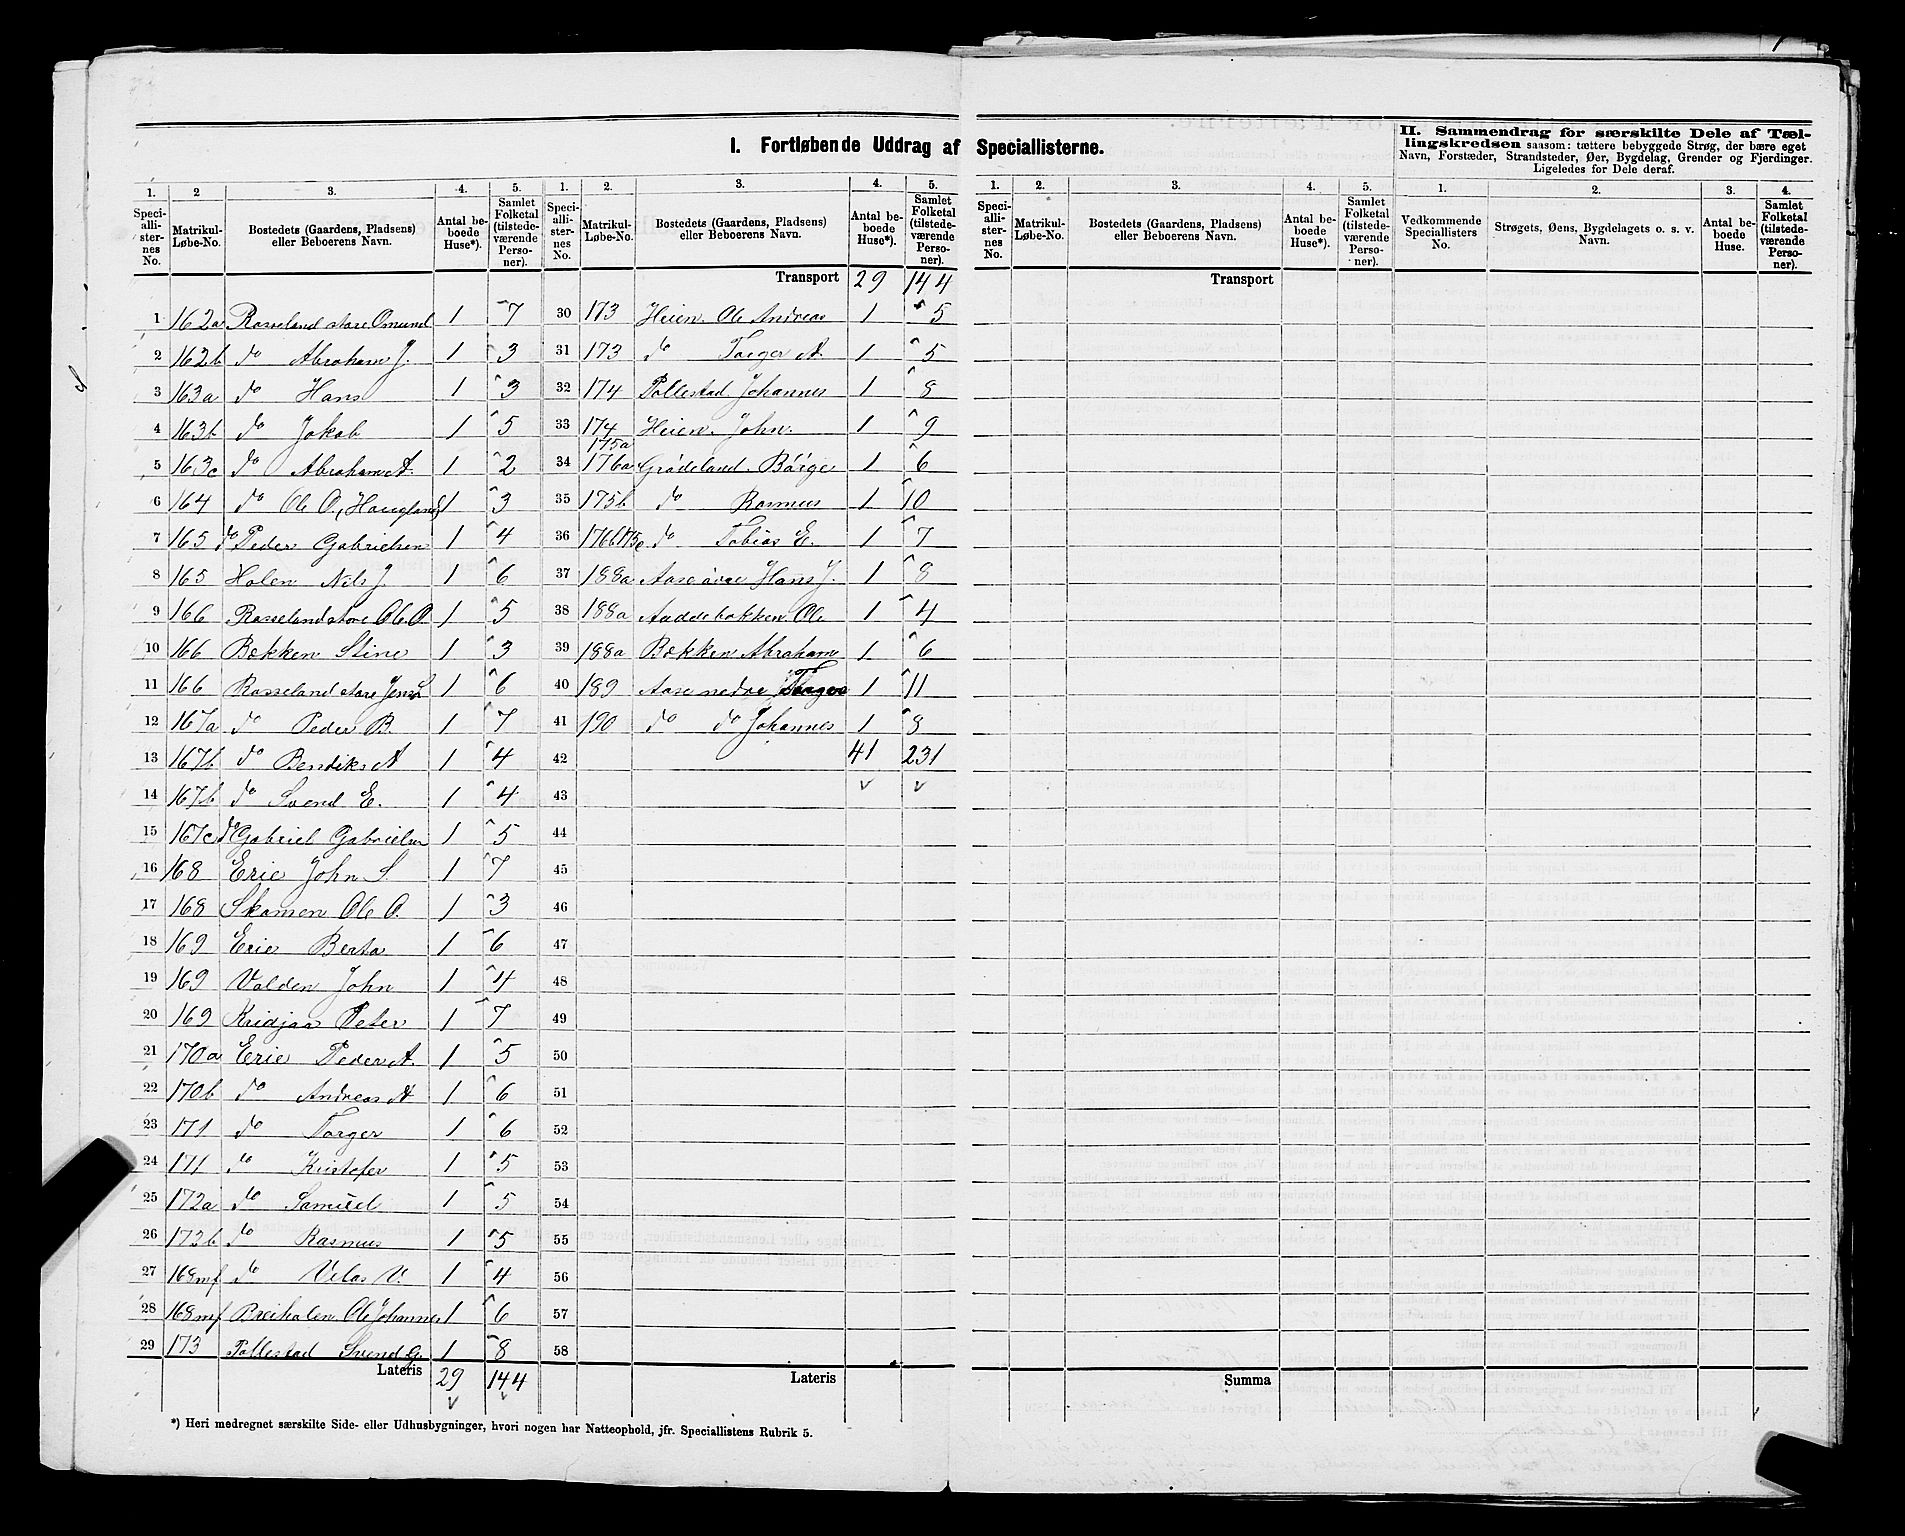 I. Fortløbende Uddrag af Speciallisterne.
II. Sammendrag for særskilte Dele af Tæl-
lingskredsen saasom: tættere bebyggede Strøg, der bære eget
Navn, Forstæder, Strandsteder, Øer, Bygdelag, Grender og Fjerdinger.
Ligeledes for Dele deraf.
1. 2 3. 4. 5. 1. 2. 3. 4. 5. 1. 2. 3. 4. 5. 1. 2. 3. 4.
Speciallisternes No. Matrikul-Løbe-No. Bostedets (Gaardens, Pladsens) eller Beboerens Navn. Antal beboede Huse*). Samlet Folketal (tilstedeværende Personer).
Speciallisternes No. Matrikul-Løbe-No. Bostedets (Gaardens, Pladsens) eller Beboerens Navn. Antal beboede Huse*). Samlet Folketal (tilstedeværende Personer).
Speciallisternes No. Matrikul-Løbe-No. Bostedets (Gaardens, Pladsens) eller Beboerens Navn. Antal beboede Huse*). Samlet Folketal (tilstedeværende Personer).
Vedkommende Speciallisters No. Strøgets, Øens, Bygdelagets o. s. v. Navn. Antal beboede Huse. Samlet Folketal (tilstedeværende Personer).
1 162a Rosseland store Omund 1 7
2 162b do Abraham J. 1 3
3 163a do Hans 1 3
4 163b do Jakob 1 5
5 163c do Abraham A. 1 2
6 164 do Ole O., Haugland 1 3
7 165 do Peder Gabrielsen 1 4
8 165 Holen Nils J. 1 6
9 166 Rosseland store Ole O. 1 5
10 166 Bækken Stine 1 3
11 166 Rosseland store Jens S 1 6
12 167a do Peder B. 1 7
13 167b do Bendik A 1 4
14 167b do Svend E. 1 4
15 167c do Gabriel Gabrielsen 1 5
16 168 Erie John S. 1 7
17 168 Skomen Ole O. 1 3
18 169 Erie Berta 1 6
19 169 Valden John 1 4
20 169 Kridjaa Peter 1 7
21 170a Erie Peder A. 1 5
22 170b do Andreas A 1 6
23 171 do Torger 1 6
24 171 do Kristofer 1 5
25 172a do Samuel 1 5
26 172b do Rasmus 1 5
27 168mf do Vilas V. 1 4
28 168mf Breiholen Ole Johannes 1 6
29 173 Pollestad Svend G. 1 8
Lateris 29 144
Transport 29 144
30 173 Heien Ole Andreas 1 5
31 173 do Torger A. 1 5
32 174 Pollestad Johannes 1 8
33 174 Heien John. 1 9
34 175a 176a Grødeland Børge 1 6
35 175b do Rasmus 1 10
36 176b 175c do Tobias E. 1 7
37 188a Aase øvre Hans J. 1 8
38 188a Auddebakken Ole 1 4
39 188a Bækken Abraham 1 6
40 189 Aase nedre Torger 1 11
41 190 do do Johannes 1 8
42 41 231
43
44
45
46
47
48
49
50
51
52
53
54
55
56
57
58
Lateris
Transport
Summa
*) Heri medregnet særskilte Side- eller Udhusbygninger, hvori nogen har Natteophold, jfr. Speciallistens Rubrik 5.